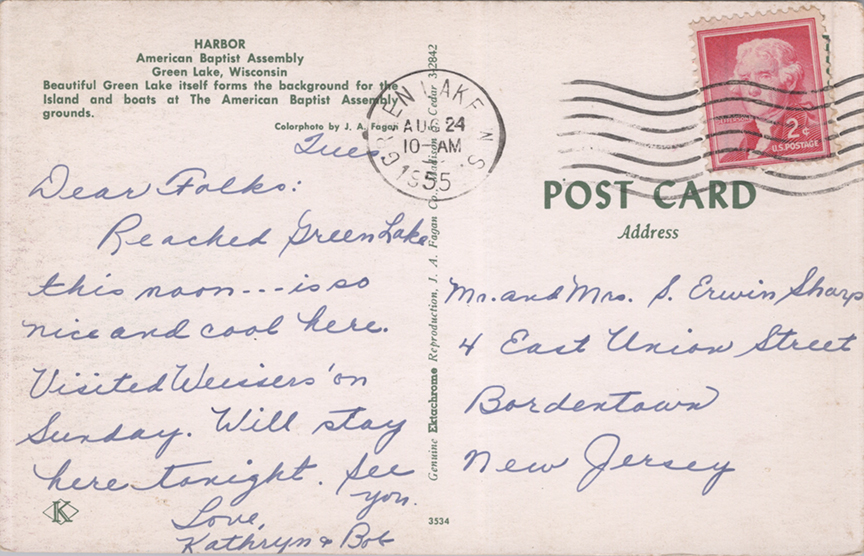 HARBOR
American Baptist Assembly
Green Lake, Wisconsin
Beautiful Green Lake itself forms the background for the
Island and boats at The American Baptist Assembly
grounds.
Colorphoto by J. A. Fagan
Tues
Dear Folks:
Reached Green Lake
this noon---is so
nice and cool here.
Visited Weissers' on
Sunday. Will stay
here tonight. See
you.
Love,
Kathryn & Bob
K
Genuine Ektachrome Reproduction, J. A. Fagan Co., Madison Cedar 3-2842
3534
GREEN LAKE
AUG 24
10 AM
1955
2¢
U.S. POSTAGE
POST CARD
Address
Mr. and Mrs. S. Erwin Sharp
4 East Union Street
Bordentown
New Jersey